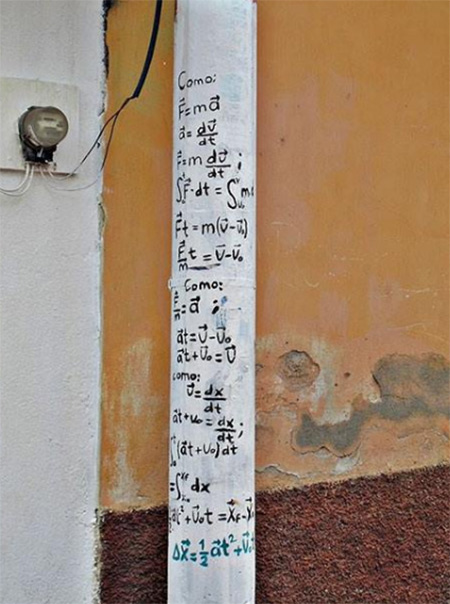 Como:
F⃗=ma⃗
a⃗=dv⃗/dt
F⃗=m dv⃗/dt;
∫F⃗·dt=∫m
F⃗t=m(v⃗-v⃗₀)
F⃗/m t=v⃗-v⃗₀
Como:
F⃗/m=a⃗;
a⃗t=v⃗-v⃗₀
a⃗t+v⃗₀=v⃗
como:
v⃗=dx⃗/dt
a⃗t+v₀=dx⃗/dt;
∫(a⃗t+v₀)dt
=∫dx
t²+v⃗₀t=x⃗f-x⃗
Δx⃗=½a⃗t²+v⃗₀